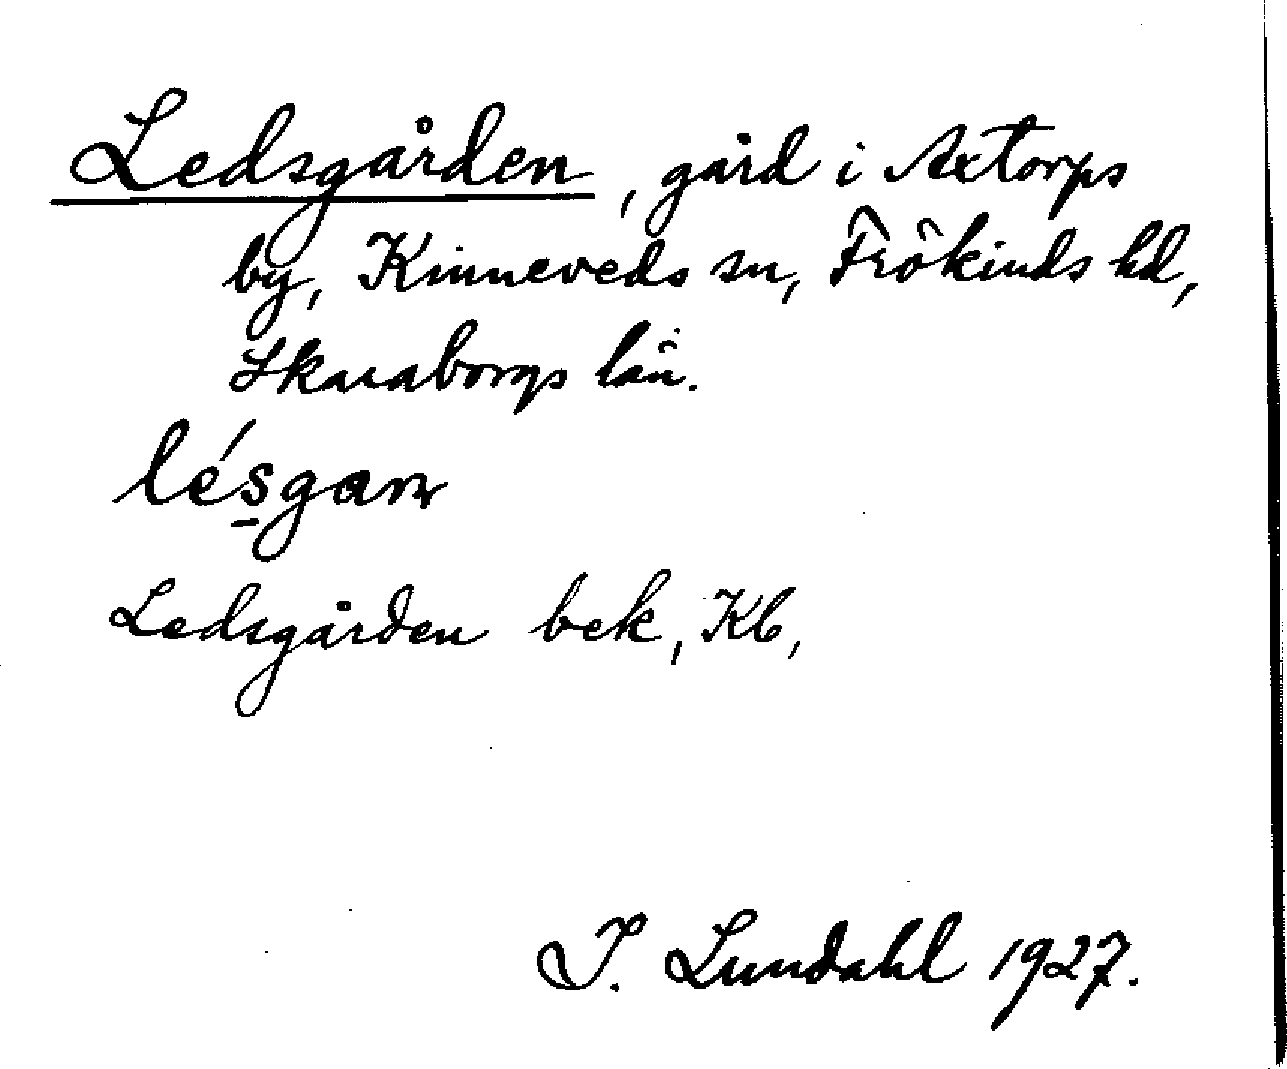 Ledsgården, gård i Axtorps
by, Kinneveds sn, Frökinds hd,
Skaraborgs län.
lésgaɳ
Ledsgården bek, Kb,
I. Lundahl 1927.